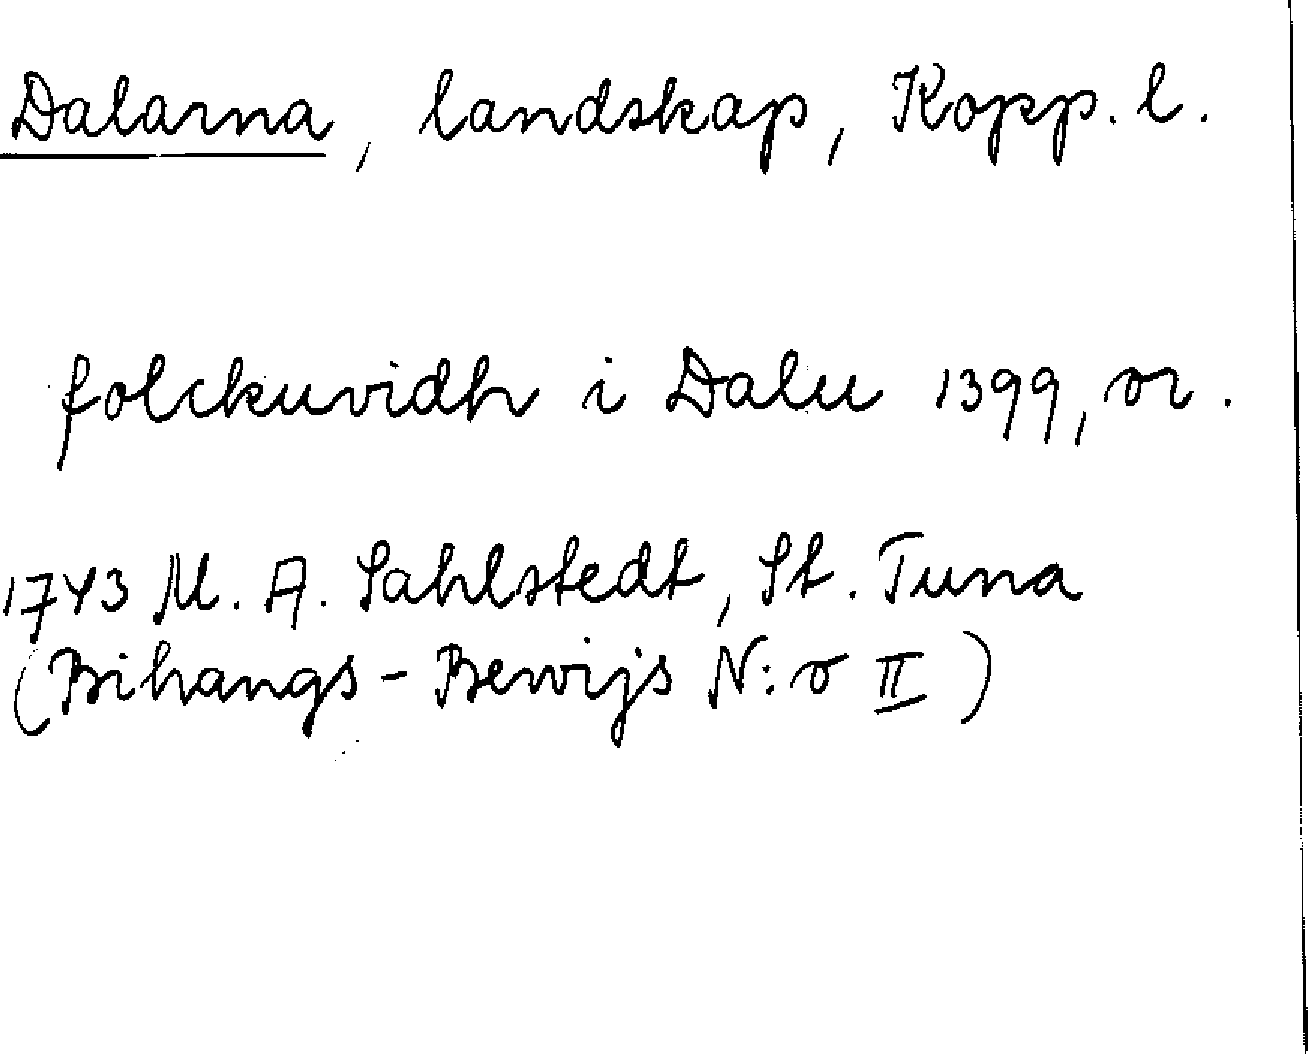 Dalarna, landskap, Kopp. l.
folckuvidh i Dalu 1399, or.
1743 M. A. Sahlstedt, St. Tuna
(Bihangs-Bewijs N:o II)